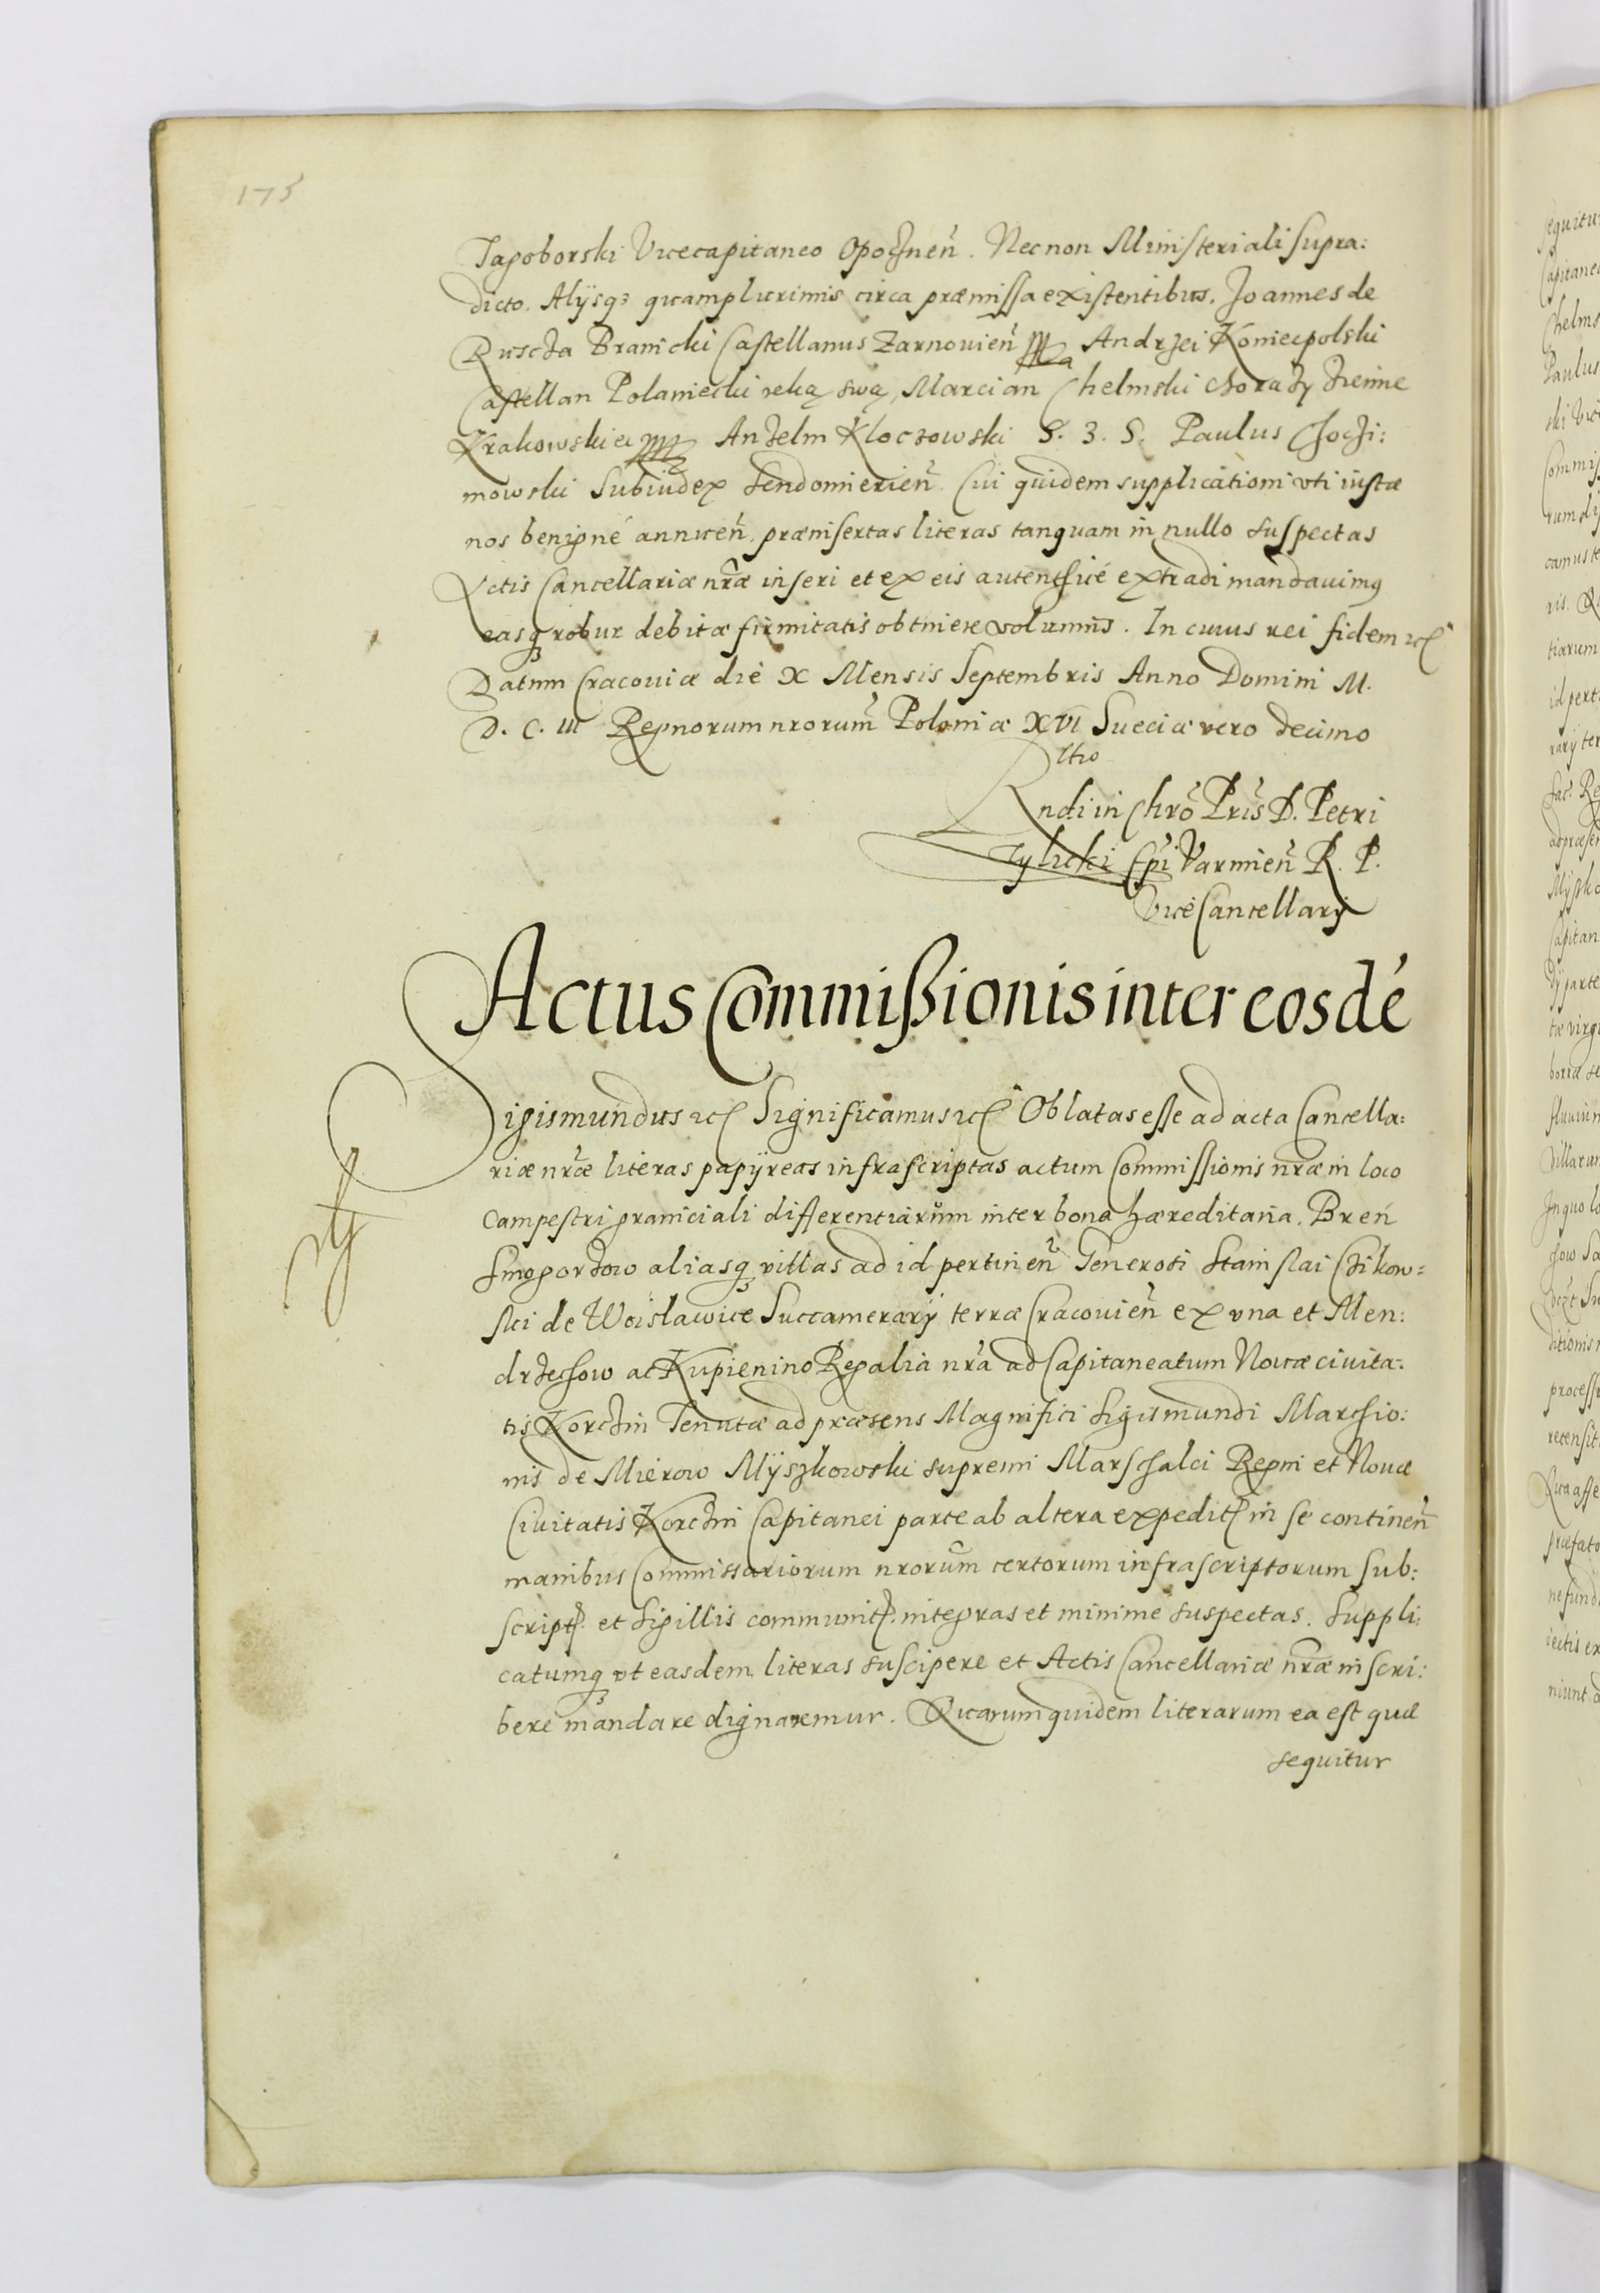 175
Japoborski Vicecapitaneo Opocznen̄. Necnon Ministeriali supra:
dicto. Alijsq₃ quamplurimis circa præmissa existentibus. Joannes de
Ruscza Branicki Castellanus Zarnovien̄ Andrzei Koniecpolski
Castellan Polaniecki ręką swą, Marcian Chelmski chorąży ziemie
Krakowskiei Anzelm Kloczowski S. 3. S. Paulus Choczi:
mowski Subiudex Sendomierien̄. Cui quidem supplicationi vti iustæ
nos benigné annuen̄. præinsertas literas tanquam in nullo suspectas
Actis Cancellariæ nr̄æ inseri et ex eis autenthicé extradi mandauimus
easq₃ robur debitæ firmitatis obtinere volumus. In cuius rei fidem etc
Datum Cracouiæ die X Mensis Septembris Anno Domini M.
D. C. III Regnorum nrorum̄ Poloniæ XVI Sueciæ vero decimo
Rndi in Chrō Pris̄ D. Petri
Tylicki Ep̄i Varmien̄ R. P.
ViceCancellarij
Actus Commißionis inter eosdé
Sigismundus etc Significamus etc Oblatas esse ad acta Cancella:
riæ nr̄æ literas papÿreas infrascriptas actum Commissionis nr̄æ in loco
campestri graniciali differentiarum inter bona hæreditaria. Breń
Smogorzow aliasq₃ villas ad id pertinen̄ Generosi Stanislai Czikow=
ski de Woislawice Succamerarij terræ Cracouien̄ ex vna et Men:
drzechow ac Kupienino Regalia nr̄a ad Capitaneatum Nouæ ciuita:
tis Korczin Tenutæ ad præsens Magnifici Sigismundi Marchio:
nis de Mierow Mÿszkowski supremi Marschalci Regni et Nouæ
Ciuitatis Korczin Capitanei parte ab altera expedit in se continen̄
manibus Commissariorum nrorum̄ certorum infrascriptorum sub:
script. et sigillis communit. integras et minime suspectas. Suppli:
catumq₃ vt easdem literas suscipere et Actis Cancellariæ nr̄æ inscri:
bere mandare dignaremur. Quarum quidem literarum ea est quæ
sequitur